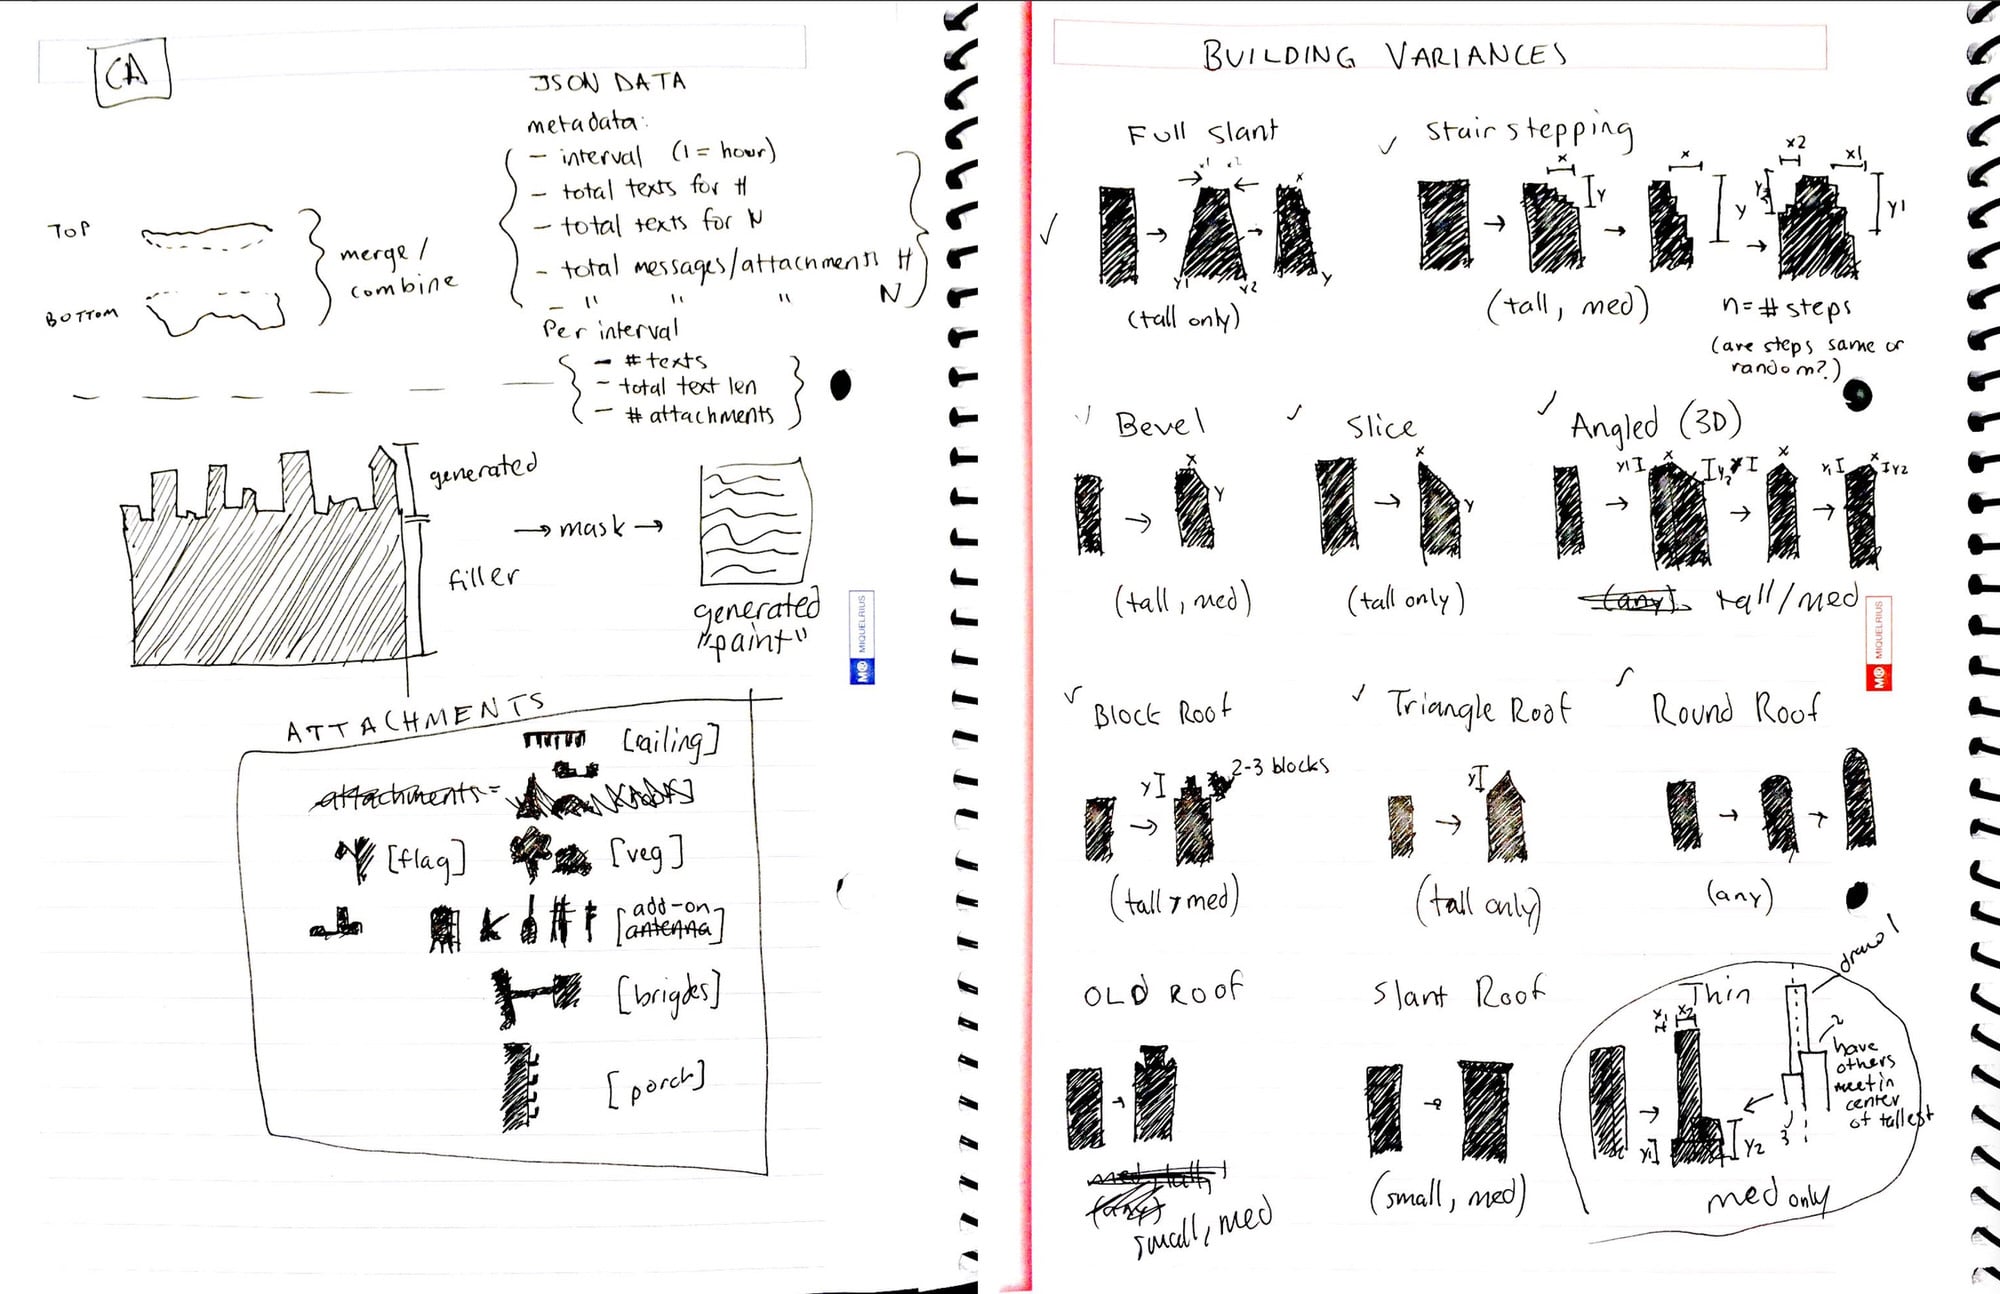 CA
JSON DATA
metadata:
- interval (1 = hour)
- total texts for H
- total texts for N
- total messages/attachments H
- " " " N
Per interval
- # texts
- total text len
- # attachments
TOP
BOTTOM
merge/
combine
generated
filler
→ mask →
generated
"paint"
MIQUELRIUS
ATTACHMENTS
[railing]
attachments =
[flag]
[veg]
add-on
[antenna]
[brigdes]
[porch]
BUILDING VARIANCES
Full Slant
x1 x2
x
y1 y2
y
(tall only)
Stair stepping
x
y
x
y
x2
x1
y2
y1
(tall, med)
n = # steps
(are steps same or
random?.)
Bevel
x
y
(tall, med)
Slice
x
y
(tall only)
Angled (3D)
y1 x y2
x
y1 x y2
(any) tall/med
MIQUELRIUS
Block Roof
y
2-3 blocks
(tall, med)
Triangle Roof
y
(tall only)
Round Roof
(any)
OLD ROOF
med, tall,
(any)
small, med
Slant Roof
(small, med)
Thin
x1 x2
y1
y2
draw 1
2
have
others
meet in
center
of tallest
3
med only